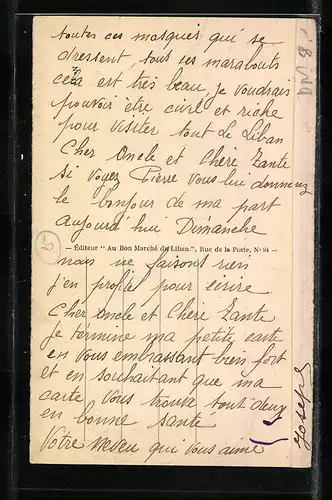 toutes ces mosqués qui se
dressent, tous ses marabouts
cela est très beau, je voudrais
pouvoir être civil et riche
pour visiter tout le Liban
Cher Oncle et Chère Tante
si voyez Pierre vous lui donnerez
le bonjour de ma part
aujourd'hui Dimanche
— Éditeur "Au Bon Marché du Liban", Rue de la Poste, N° 94 —
nous ne faisont rien
j'en profite pour écrire
Cher Oncle et Chère Tante
Je termine ma petite carte
en vous embrassant bien fort
et en souhaitant que ma
carte vous trouve tout deux
en bonne sante
Votre neveu qui vous aime
Joseph